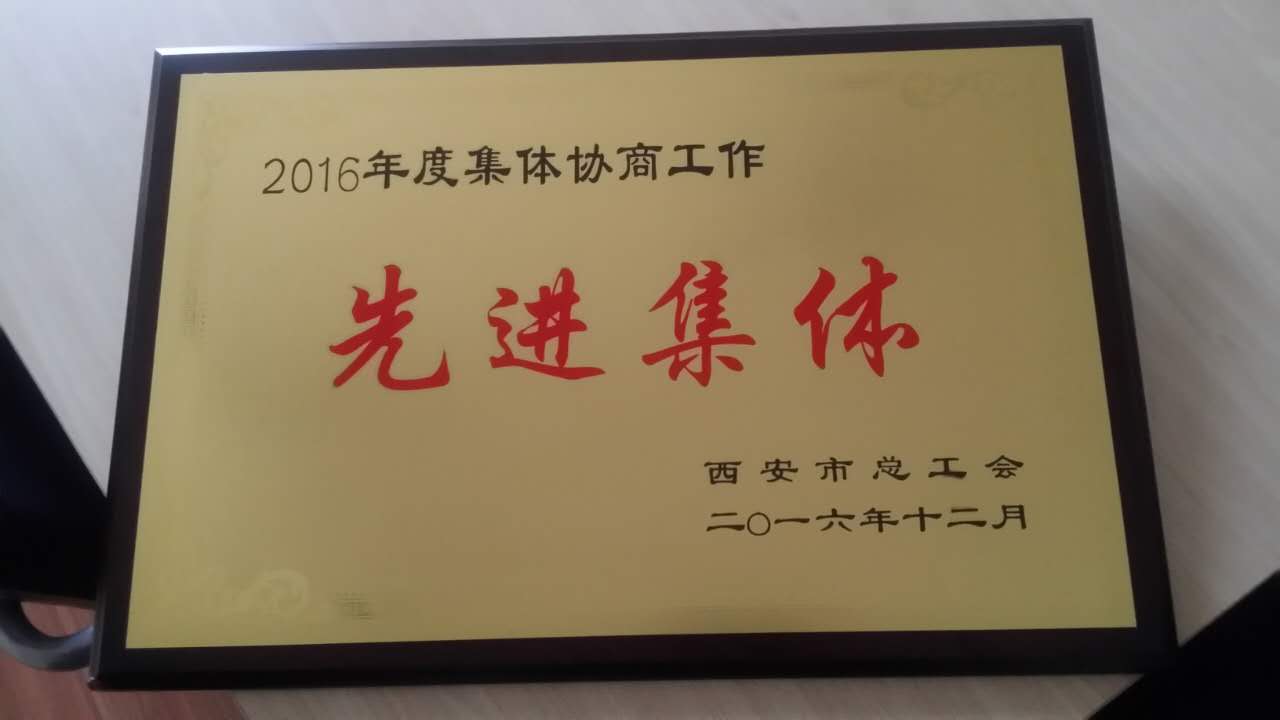 2016年度集体协商工作
先进集体
西安市总工会
二〇一六年十二月